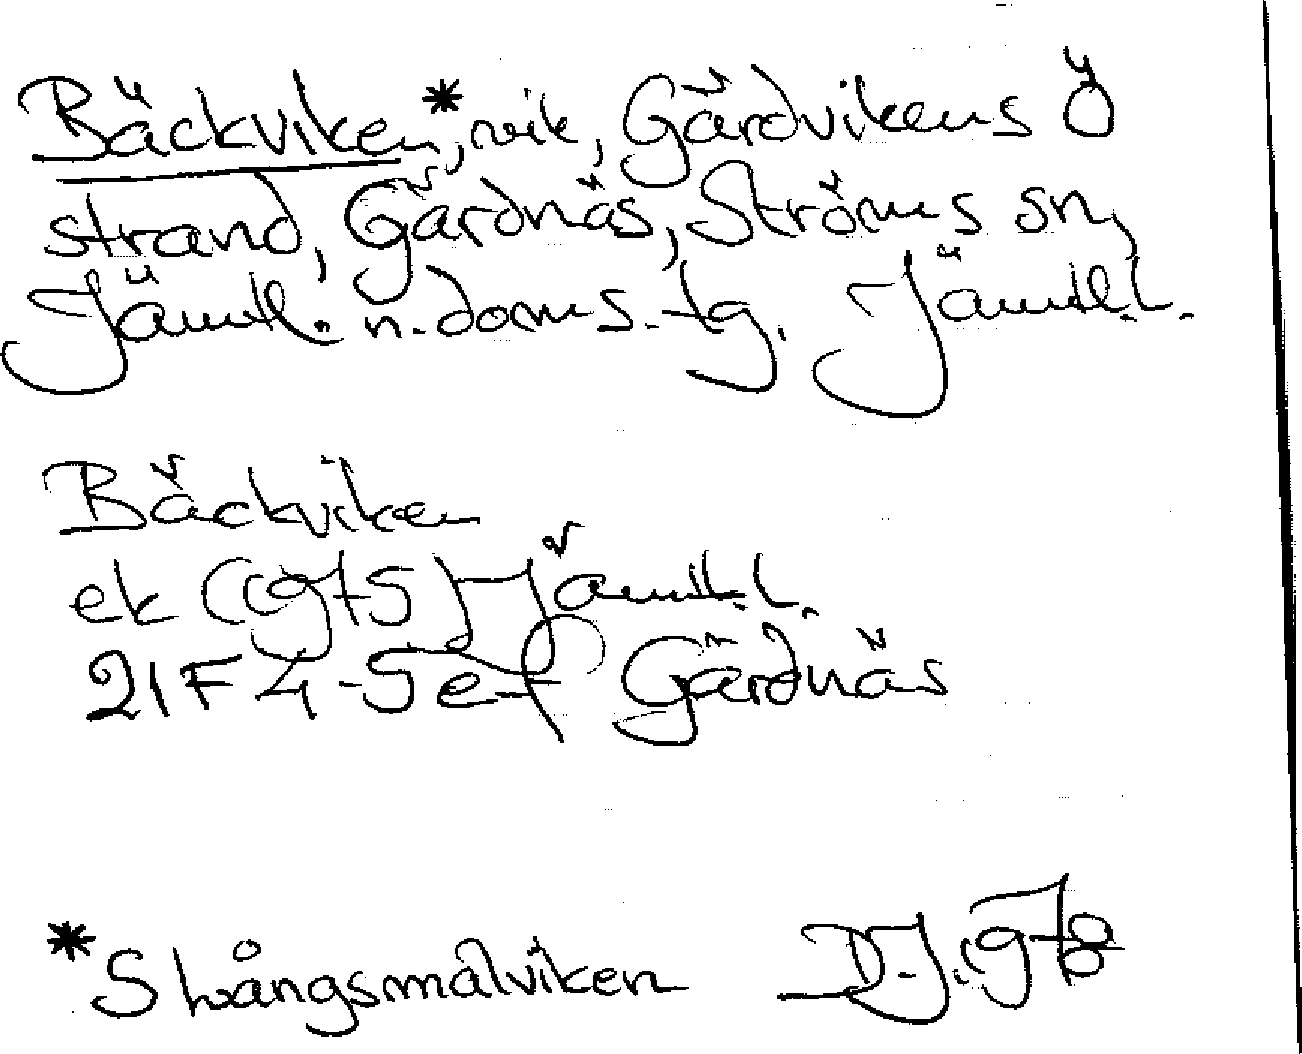 Bäckviken*, vik, Gärdvikens Ö
strand, Gärdnäs, Ströms sn,
Jämtl. n. doms. tg. Jämtl.l.
Bäckviken
ek (1975) Jämtl.l.
21F 4-5 e-f Gärdnäs
*Slångsmalviken D.J. 1978